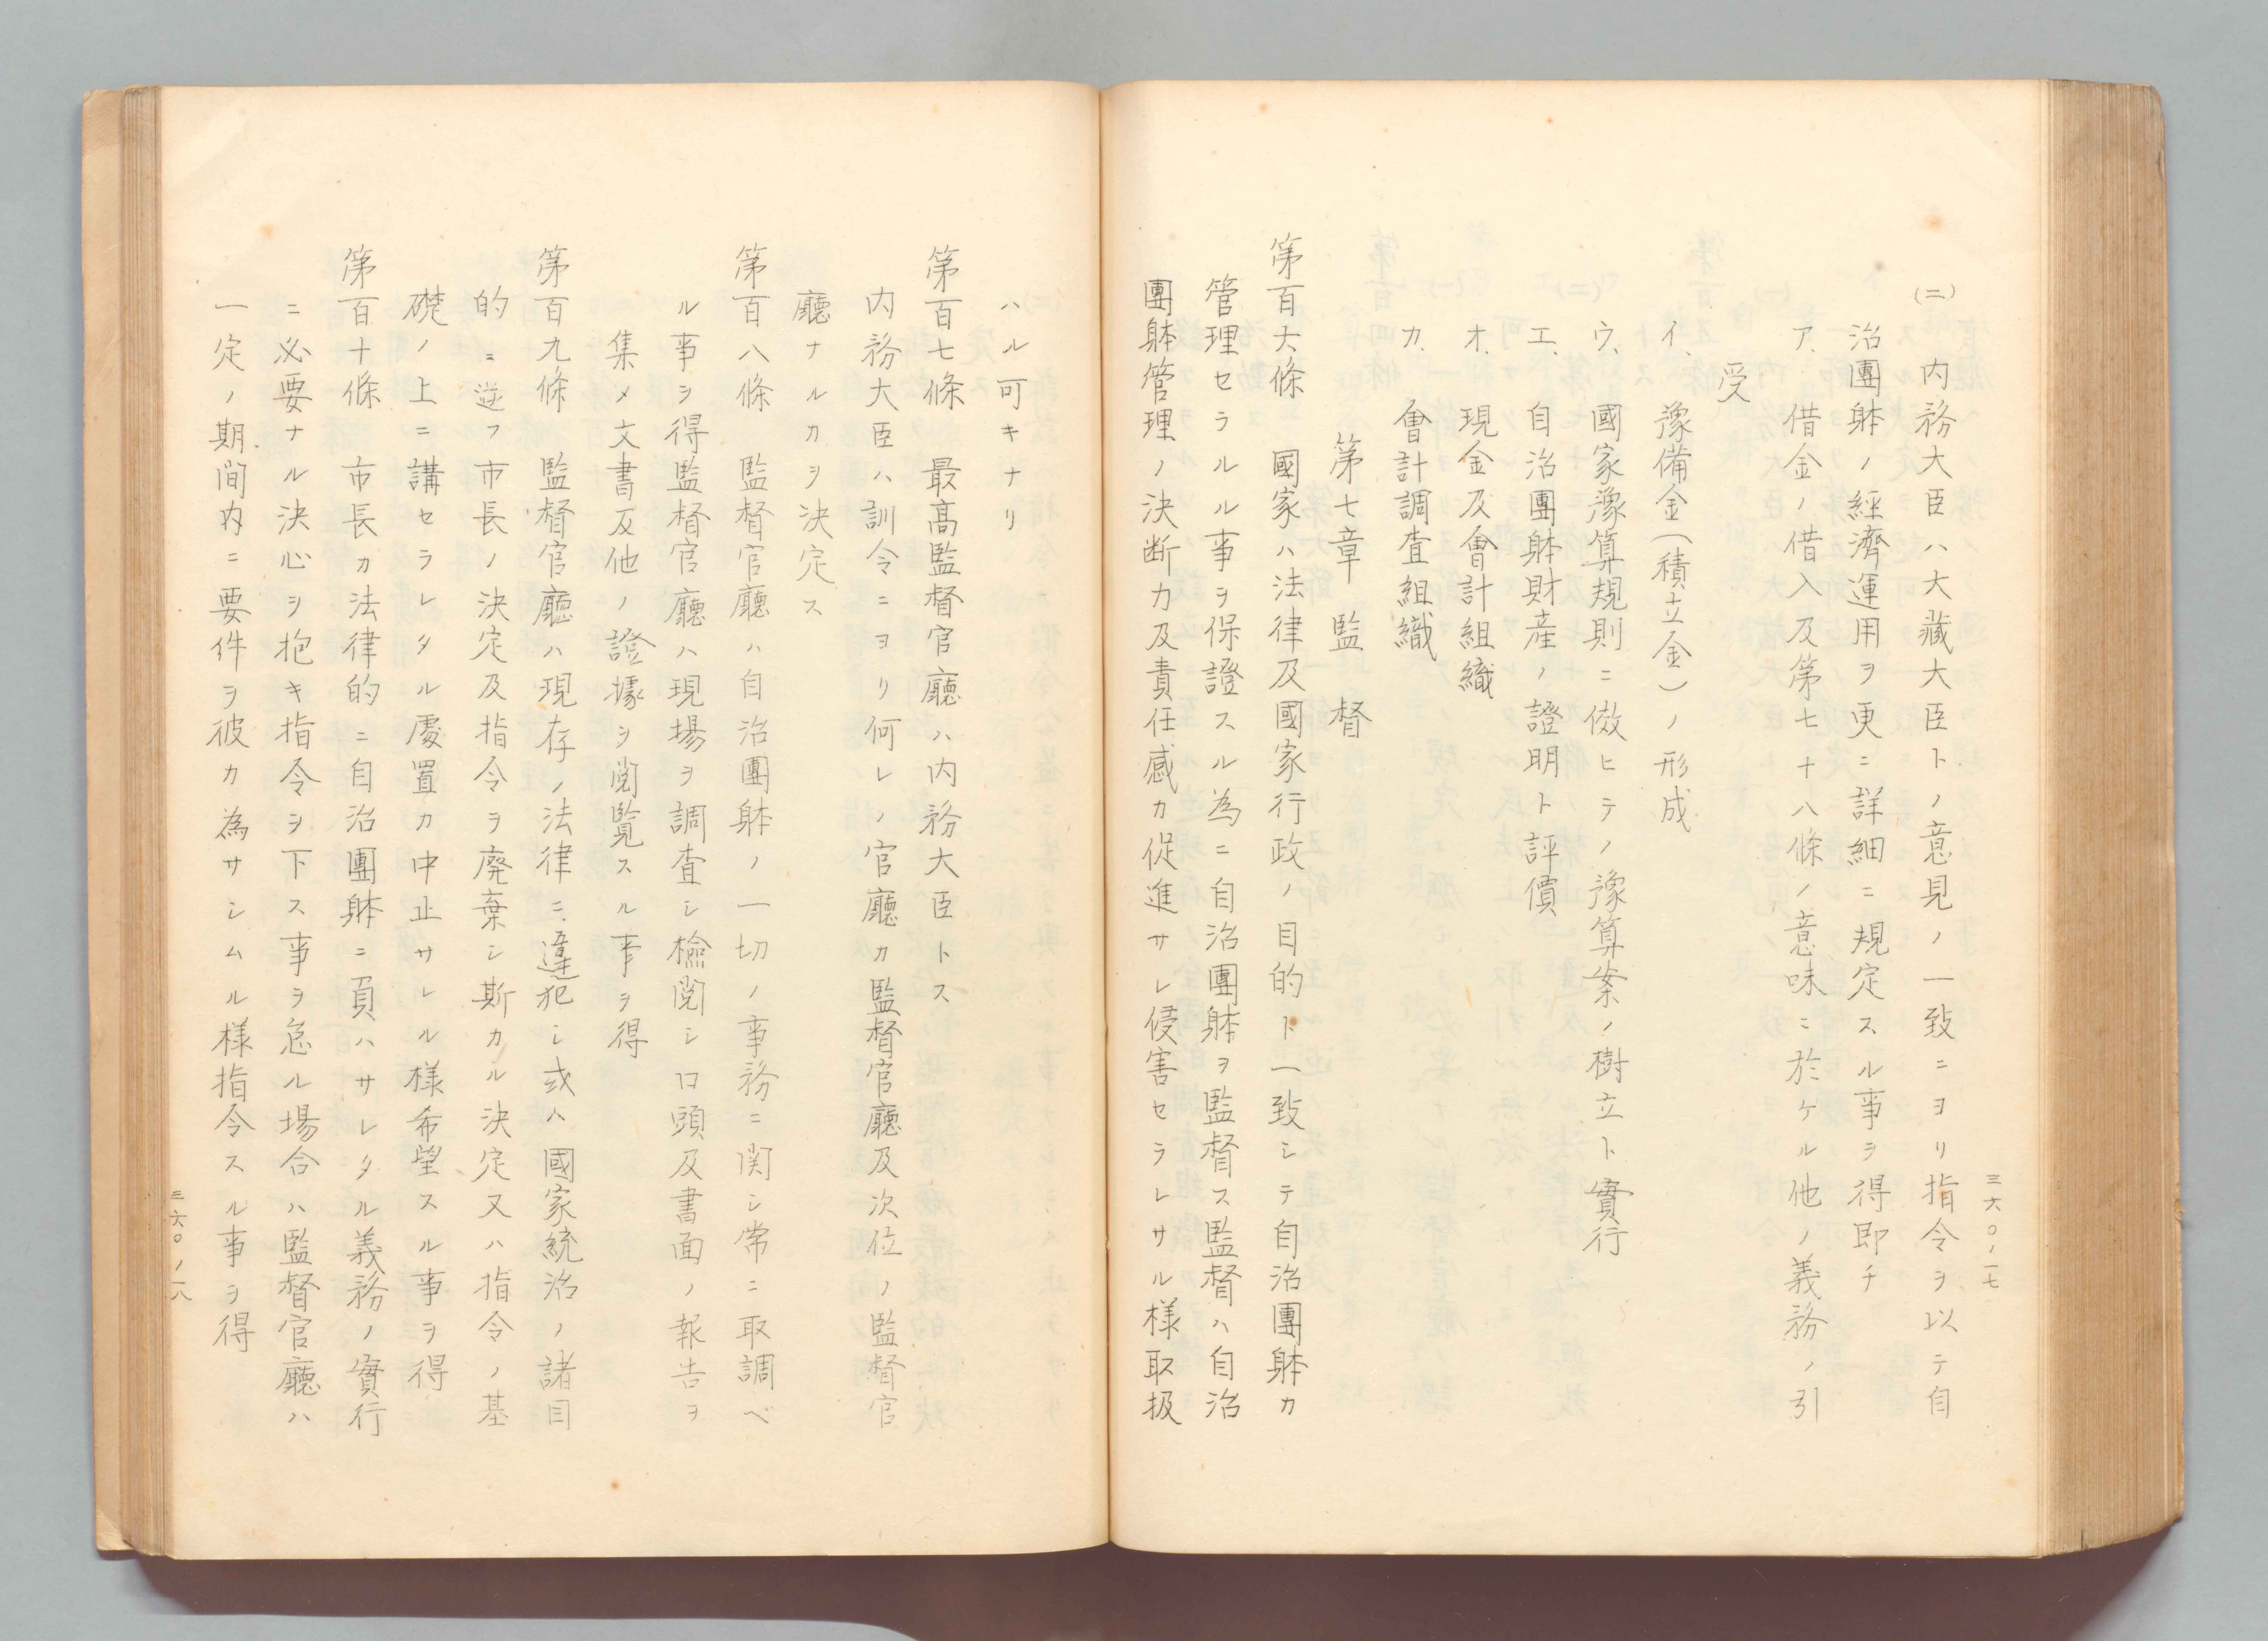 三六〇ノ一七
(二) 内務大臣ハ大藏大臣トノ意見ノ一致ニヨリ指令ヲ以テ自
治團躰ノ經濟運用ヲ更ニ詳細ニ規定スル事ヲ得即チ
ア、借金ノ借入及第七十八條ノ意味ニ於ケル他ノ義務ノ引
受
イ、豫備金(積立金)ノ形成
ウ、國家豫算規則ニ倣ヒテノ豫算案ノ樹立ト實行
エ、自治團躰財産ノ證明ト評價
オ、現金及會計組織
カ、會計調査組織
第七章 監督
第百六條 國家ハ法律及國家行政ノ目的ト一致シテ自治團躰カ
管理セラルル事ヲ保證スル為ニ自治團躰ヲ監督ス監督ハ自治
團躰管理ノ決断力及責任感カ促進サレ侵害セラレサル様取扱
ハル可キナリ
第百七條 最高監督官廳ハ内務大臣トス
内務大臣ハ訓令ニヨリ何レノ官廳カ監督官廳及次位ノ監督官
廳ナルカヲ決定ス
第百八條 監督官廳ハ自治團躰ノ一切ノ事務ニ関シ常ニ取調ベ
ル事ヲ得監督官廳ハ現場ヲ調査シ檢閲シ口頭及書面ノ報告ヲ
集メ文書及他ノ證據ヲ閲覧スル事ヲ得
第百九條 監督官廳ハ現存ノ法律ニ違犯シ或ハ國家統治ノ諸目
的ニ逆フ市長ノ決定及指令ヲ廃棄シ斯カル決定又ハ指令ノ基
礎ノ上ニ講セラレタル處置カ中止サレル様希望スル事ヲ得
第百十條 市長カ法律的ニ自治團躰ニ負ハサレタル義務ノ實行
ニ必要ナル決心ヲ抱キ指令ヲ下ス事ヲ怠ル場合ハ監督官廳ハ
一定ノ期間内ニ要件ヲ彼カ為サシムル様指令スル事ヲ得
三六〇ノ一八